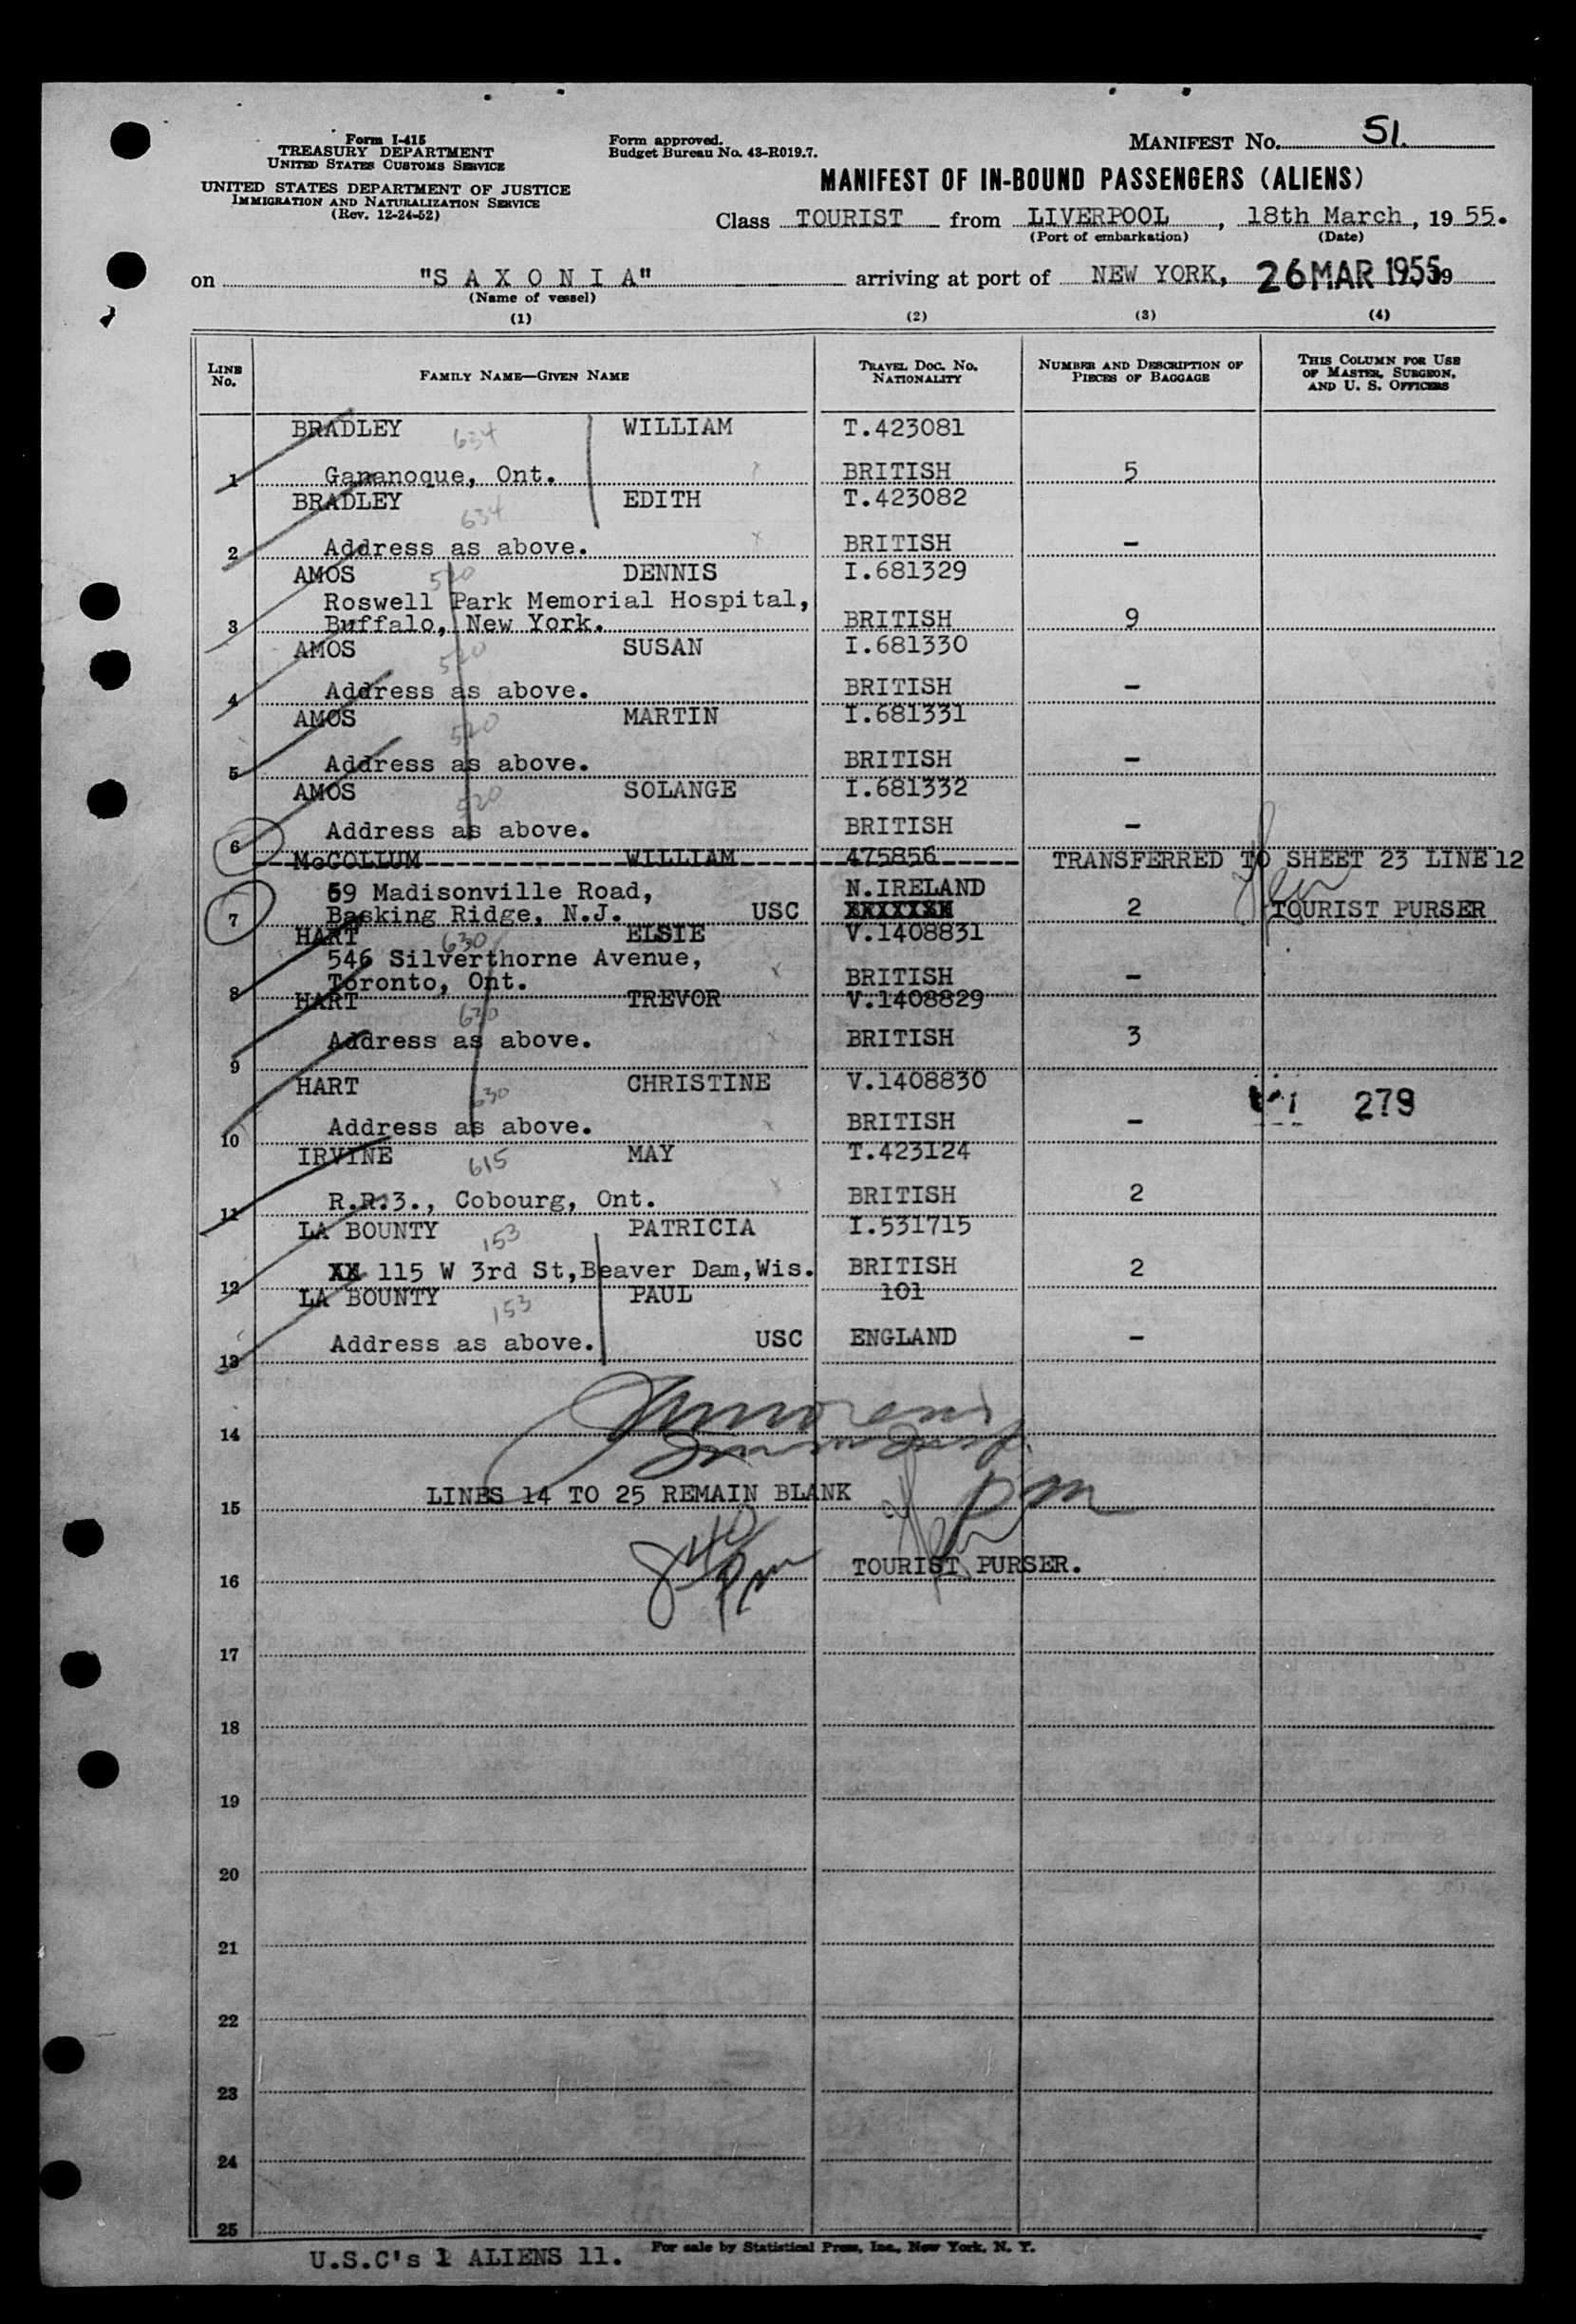 Form I-415
TREASURY DEPARTMENT
UNITED STATES CUSTOMS SERVICE
UNITED STATES DEPARTMENT OF JUSTICE
IMMIGRATION AND NATURALIZATION SERVICE
(Rev. 12-24-52)
Form approved.
Budget Bureau No. 43-R019.7.
MANIFEST No. 51.
MANIFEST OF IN-BOUND PASSENGERS (ALIENS)
Class TOURIST from LIVERPOOL, 18th March, 1955.
(Port of embarkation) (Date)
on "S A X O N I A" arriving at port of NEW YORK, 26 MAR 1955 19
(Name of vessel)
(1) (2) (3) (4)
LINE No. FAMILY NAME—GIVEN NAME TRAVEL DOC. No. NATIONALITY NUMBER AND DESCRIPTION OF PIECES OF BAGGAGE THIS COLUMN FOR USE OF MASTER, SURGEON, AND U. S. OFFICERS
BRADLEY 634 WILLIAM T.423081
1 Gananoque, Ont. BRITISH 5
BRADLEY 634 EDITH T.423082
2 Address as above. BRITISH -
AMOS 520 DENNIS I.681329
Roswell Park Memorial Hospital,
3 Buffalo, New York. BRITISH 9
AMOS 520 SUSAN I.681330
4 Address as above. BRITISH -
AMOS 520 MARTIN I.681331
5 Address as above. BRITISH -
AMOS 520 SOLANGE I.681332
6 Address as above. BRITISH -
McCOLLUM WILLIAM 475856 TRANSFERRED TO SHEET 23 LINE 12
59 Madisonville Road, N.IRELAND
7 Basking Ridge, N.J. USC XXXXXXX 2 TOURIST PURSER
HART 630 ELSIE V.1408831
546 Silverthorne Avenue,
8 Toronto, Ont. BRITISH -
HART 630 TREVOR V.1408829
9 Address as above. BRITISH 3
HART 630 CHRISTINE V.1408830
279
10 Address as above. BRITISH -
IRVINE 615 MAY T.423124
11 R.R.3., Cobourg, Ont. BRITISH 2
LA BOUNTY 153 PATRICIA I.531715
12 XX 115 W 3rd St,Beaver Dam,Wis. BRITISH 2
LA BOUNTY 153 PAUL 101
13 Address as above. USC ENGLAND -
14
LINES 14 TO 25 REMAIN BLANK
15
16 TOURIST PURSER.
17
18
19
20
21
22
23
24
25
U.S.C's 1 ALIENS 11. For sale by Statistical Press, Inc., New York, N. Y.